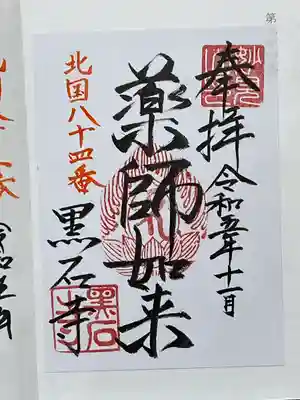 第
奉拝
令和五年十一月
薬師如来
北国八十四番
黒石寺
黒石寺